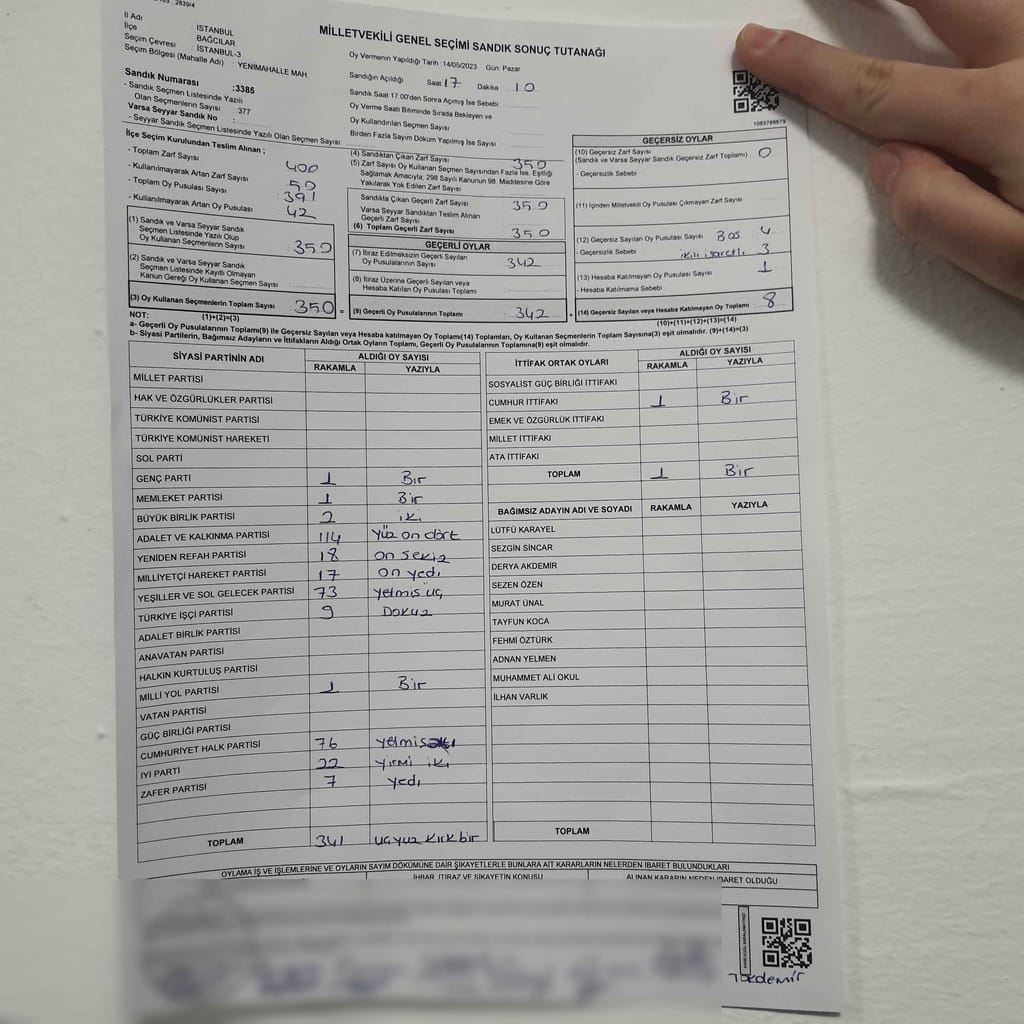 : 2839/4
İl Adı : İSTANBUL
İlçe : BAĞCILAR
Seçim Çevresi : İSTANBUL-3
Seçim Bölgesi (Mahalle Adı) : YENİMAHALLE MAH
MİLLETVEKİLİ GENEL SEÇİMİ SANDIK SONUÇ TUTANAĞI
Oy Vermenin Yapıldığı Tarih :14/05/2023 Gün: Pazar
Sandığın Açıldığı Saat 17 Dakika 10
Sandık Saat 17.00'den Sonra Açımış İse Sebebi
Oy Verme Saati Bitiminde Sırada Bekleyen ve
Oy Kullandırılan Seçmen Sayısı
Birden Fazla Sayım Döküm Yapılmış İse Sayısı
Sandık Numarası :3385
- Sandık Seçmen Listesinde Yazılı
Olan Seçmenlerin Sayısı : 377
Varsa Seyyar Sandık No :
- Seyyar Sandık Seçmen Listesinde Yazılı Olan Seçmen Sayısı:
1083788679
İlçe Seçim Kurulundan Teslim Alınan ;
- Toplam Zarf Sayısı 400
- Kullanılmayarak Artan Zarf Sayısı 50
- Toplam Oy Pusulası Sayısı 391
- Kullanılmayarak Artan Oy Pusulası 42
(1) Sandık ve Varsa Seyyar Sandık
Seçmen Listesinde Yazılı Olup
Oy Kullanan Seçmenlerin Sayısı 350
(2) Sandık ve Varsa Seyyar Sandık
Seçmen Listesinde Kayıtlı Olmayan
Kanun Gereği Oy Kullanan Seçmen Sayısı
(3) Oy Kullanan Seçmenlerin Toplam Sayısı 350
(1)+(2)=(3)
(4) Sandıktan Çıkan Zarf Sayısı 350
(5) Zarf Sayısı Oy Kullanan Seçmen Sayısından Fazla İse, Eşitliği
Sağlamak Amacıyla; 298 Sayılı Kanunun 98. Maddesine Göre
Yakılarak Yok Edilen Zarf Sayısı
Sandıkta Çıkan Geçerli Zarf Sayısı 350
Varsa Seyyar Sandıktan Teslim Alınan
Geçerli Zarf Sayısı
(6) Toplam Geçerli Zarf Sayısı 350
GEÇERLİ OYLAR
(7) İtiraz Edilmeksizin Geçerli Sayılan
Oy Pusulalarının Sayısı 342
(8) İtiraz Üzerine Geçerli Sayılan veya
Hesaba Katılan Oy Pusulası Toplamı
= (9) Geçerli Oy Pusulalarının Toplamı 342
GEÇERSİZ OYLAR
(10) Geçersiz Zarf Sayısı
(Sandık ve Varsa Seyyar Sandık Geçersiz Zarf Toplamı) 0
- Geçersizlik Sebebi :
(11) İçinden Milletvekili Oy Pusulası Çıkmayan Zarf Sayısı
(12) Geçersiz Sayılan Oy Pusulası Sayısı Bos 4
- Geçersizlik Sebebi ikili işaretli 3
(13) Hesaba Katılmayan Oy Pusulası Sayısı 1
- Hesaba Katılmama Sebebi :
+ (14) Geçersiz Sayılan veya Hesaba Katılmayan Oy Toplamı 8
(10)+(11)+(12)+(13)=(14)
NOT:
a- Geçerli Oy Pusulalarının Toplamı(9) ile Geçersiz Sayılan veya Hesaba katılmayan Oy Toplam(14) Toplamları, Oy Kullanan Seçmenlerin Toplam Sayısına(3) eşit olmalıdır. (9)+(14)=(3)
b- Siyasi Partilerin, Bağımsız Adayların ve İttifakların Aldığı Ortak Oyların Toplamı, Geçerli Oy Pusulalarının Toplamına(9) eşit olmalıdır.
SİYASİ PARTİNİN ADI ALDIĞI OY SAYISI
RAKAMLA YAZIYLA
MİLLET PARTİSİ
HAK VE ÖZGÜRLÜKLER PARTİSİ
TÜRKİYE KOMÜNİST PARTİSİ
TÜRKİYE KOMÜNİST HAREKETİ
SOL PARTİ
GENÇ PARTİ 1 Bir
MEMLEKET PARTİSİ 1 Bir
BÜYÜK BİRLİK PARTİSİ 2 iki
ADALET VE KALKINMA PARTİSİ 114 Yüz on dört
YENİDEN REFAH PARTİSİ 18 on sekiz
MİLLİYETÇİ HAREKET PARTİSİ 17 on yedi
YEŞİLLER VE SOL GELECEK PARTİSİ 73 yetmiş üç
TÜRKİYE İŞÇİ PARTİSİ 9 Dokuz
ADALET BİRLİK PARTİSİ
ANAVATAN PARTİSİ
HALKIN KURTULUŞ PARTİSİ
MİLLİ YOL PARTİSİ 1 Bir
VATAN PARTİSİ
GÜÇ BİRLİĞİ PARTİSİ
CUMHURİYET HALK PARTİSİ 76
İYİ PARTİ 22 yirmi iki
ZAFER PARTİSİ 7 yedi
TOPLAM 341 üçyüz kırkbir
İTTİFAK ORTAK OYLARI ALDIĞI OY SAYISI
RAKAMLA YAZIYLA
SOSYALİST GÜÇ BİRLİĞİ İTTİFAKI
CUMHUR İTTİFAKI 1 Bir
EMEK VE ÖZGÜRLÜK İTTİFAKI
MİLLET İTTİFAKI
ATA İTTİFAKI
TOPLAM 1 Bir
BAĞIMSIZ ADAYIN ADI VE SOYADI RAKAMLA YAZIYLA
LÜTFÜ KARAYEL
SEZGİN SİNCAR
DERYA AKDEMİR
SEZEN ÖZEN
MURAT ÜNAL
TAYFUN KOCA
FEHMİ ÖZTÜRK
ADNAN YELMEN
MUHAMMET ALİ OKUL
İLHAN VARLIK
TOPLAM
OYLAMA İŞ VE İŞLEMLERİNE VE OYLARIN SAYIM DÖKÜMÜNE DAİR ŞİKAYETLERLE BUNLARA AİT KARARLARIN NELERDEN İBARET BULUNDUKLARI
İHBAR, İTİRAZ VE ŞİKAYETİN KONUSU
ALINAN KARARIN NEDEN İBARET OLDUĞU